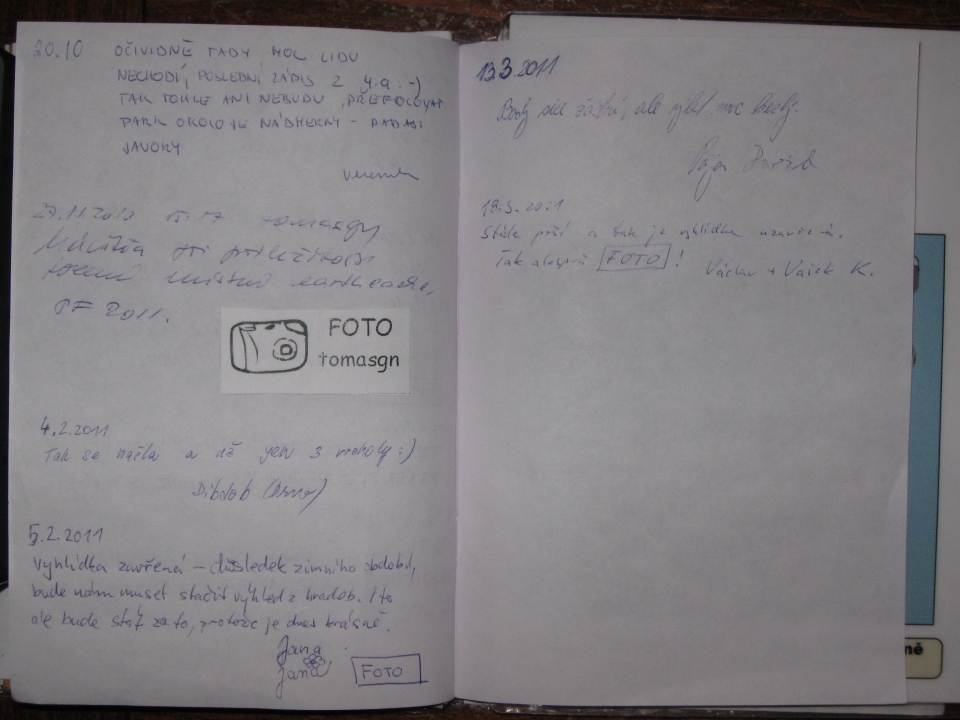 20.10 OČIVIDNĚ TADY MOC LIDU
NECHODÍ, POSLEDNÍ ZÁPIS Z 4.9. :-)
TAK TOHLE ANI NEBUDU PŘEFOCOVAT.
PARK OKOLO JE NÁDHERNÝ - PADAJÍ
JAVORY
tomasgn
Návštěva při příležitosti
místní earthcache.
PF 2011.
FOTO
tomasgn
4.2.2011
Tak se našla a už jen 3 vrcholy :)
5.2.2011
Vyhlídka zavřená - důsledek zimního období,
bude nám muset stačit výhled z hradeb. I to
ale bude stát za to, protože je dnes krásně.
Jana
Jana
FOTO
13.3.2011
ale výhled moc hezký.
18.3.2011
Stále prší a tak je vyhlídka uzavřená.
Tak alespoň FOTO!
Václav + Vašek K.
ně